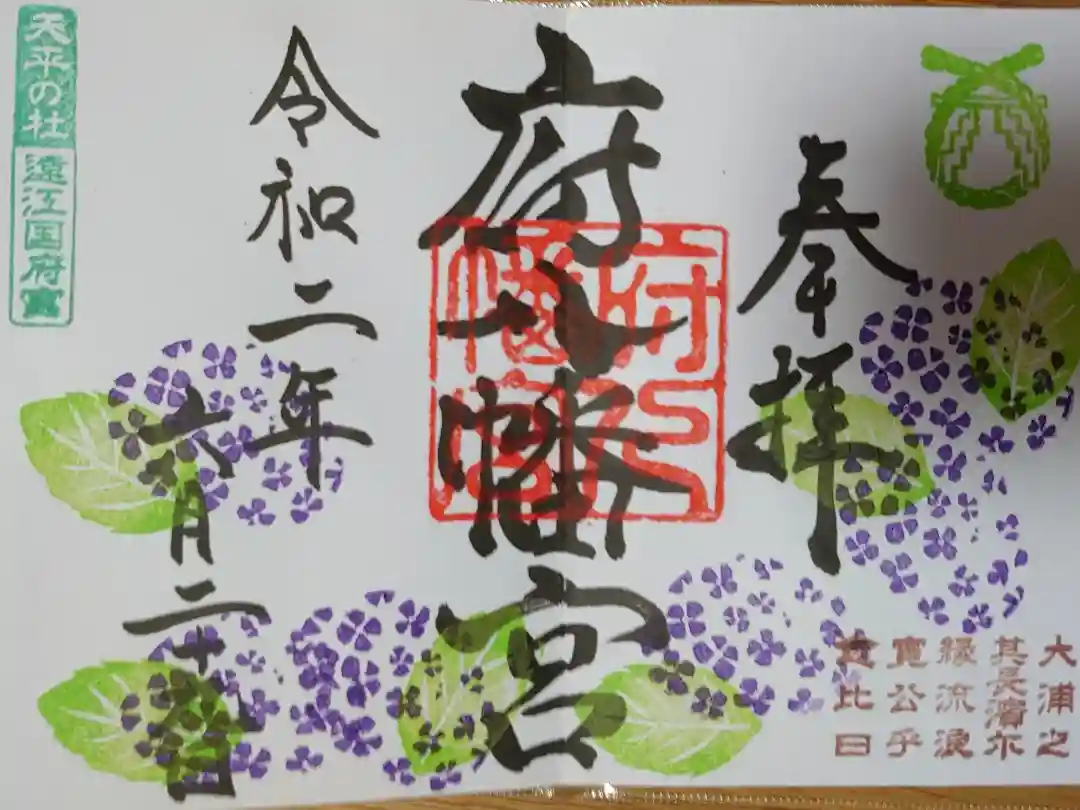 奉拝
府八幡宮
府八
幡宮
令和二年
六月二十日
天平の社
遠江国府
大浦之
其長濱尓
縁流浪
寛公乎
念比日